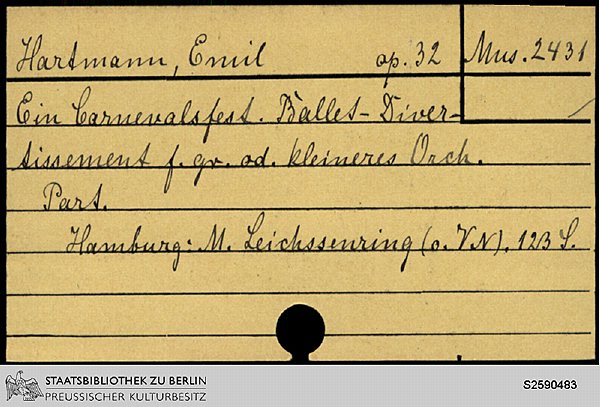 Hartmann, Emil op. 32 Mus. 2431
Ein Carnevalsfest. Ballet-Diver-
tissement f. gr. od. kleineres Orch.
Part.
Hamburg: M. Leichssenring (o. VN). 123 S.
STAATSBIBLIOTHEK ZU BERLIN
PREUSSISCHER KULTURBESITZ
S2590483